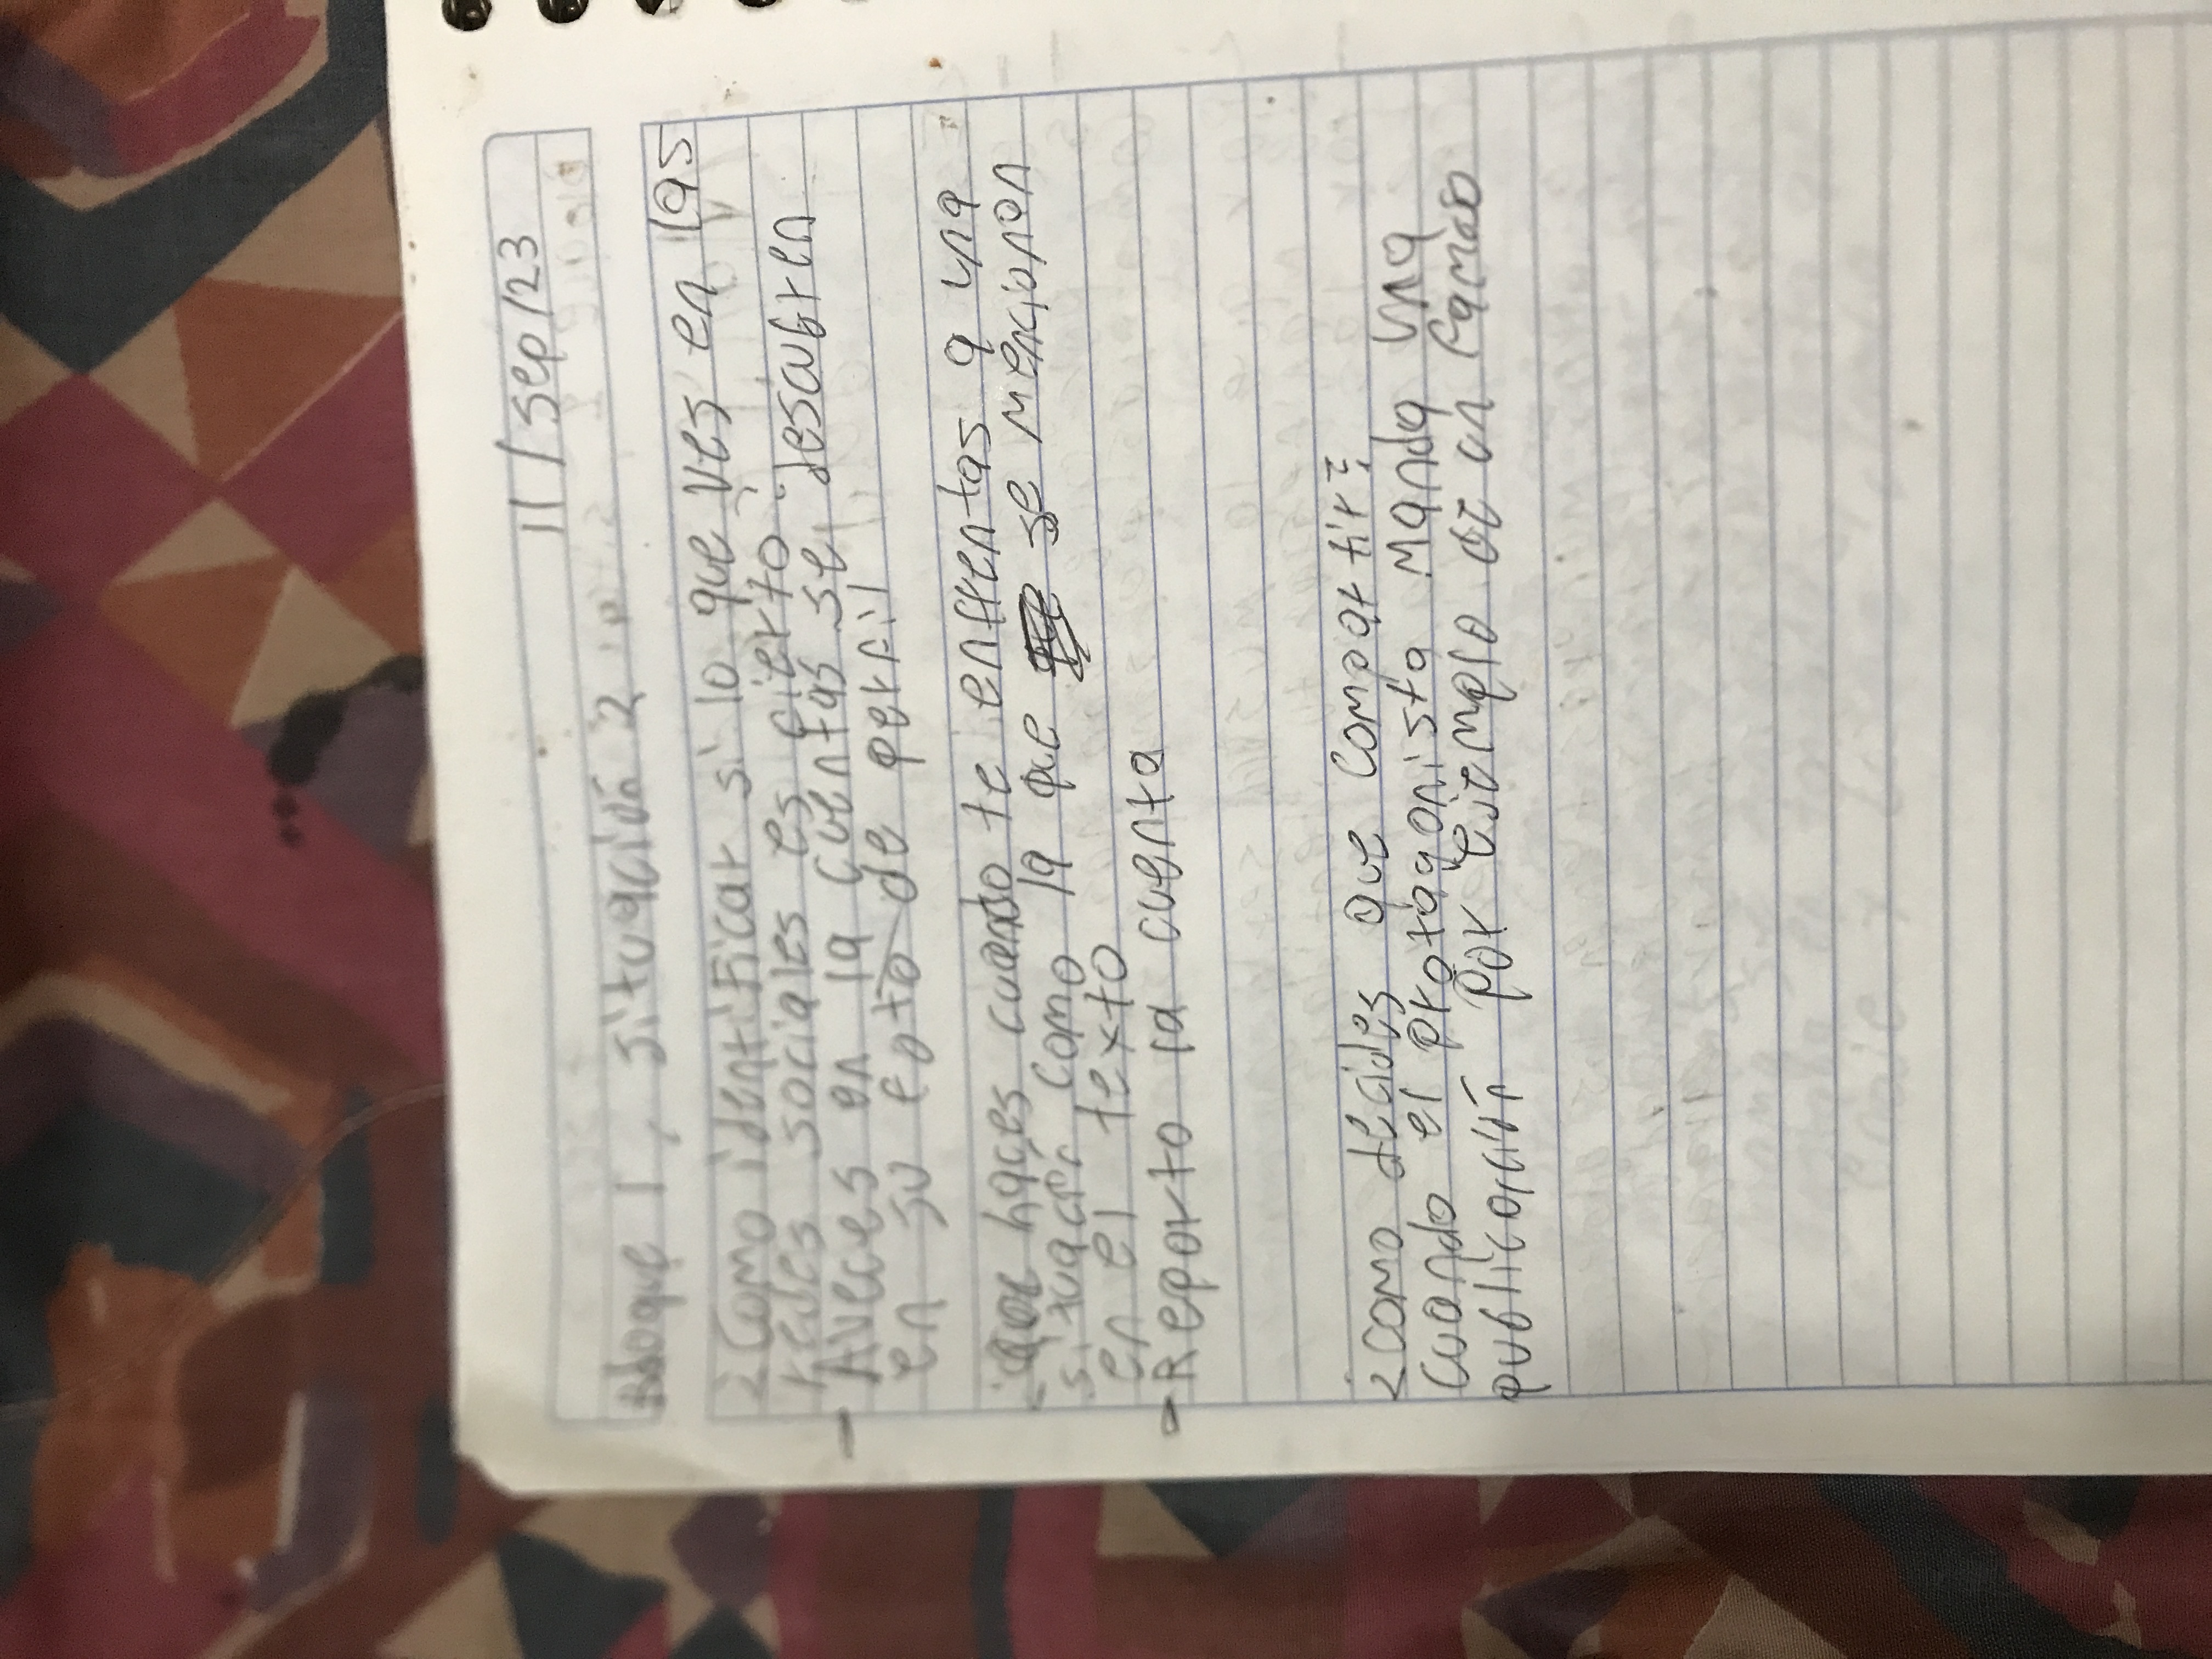 11/sep/23
Bloque 1, situación 2
¿Como identificar si lo que ves en las
redes sociales es cierto?
Aveces en la cuentas se desaubren
- en su foto de perfil
¿Que haces cuando te enfrentas a una
situación como la que se mencionan
en el texto
- Reporto la cuenta
¿Como decides que compartir?
Cuando el protagonista Manda una
publicación por ejemplo de un famoso